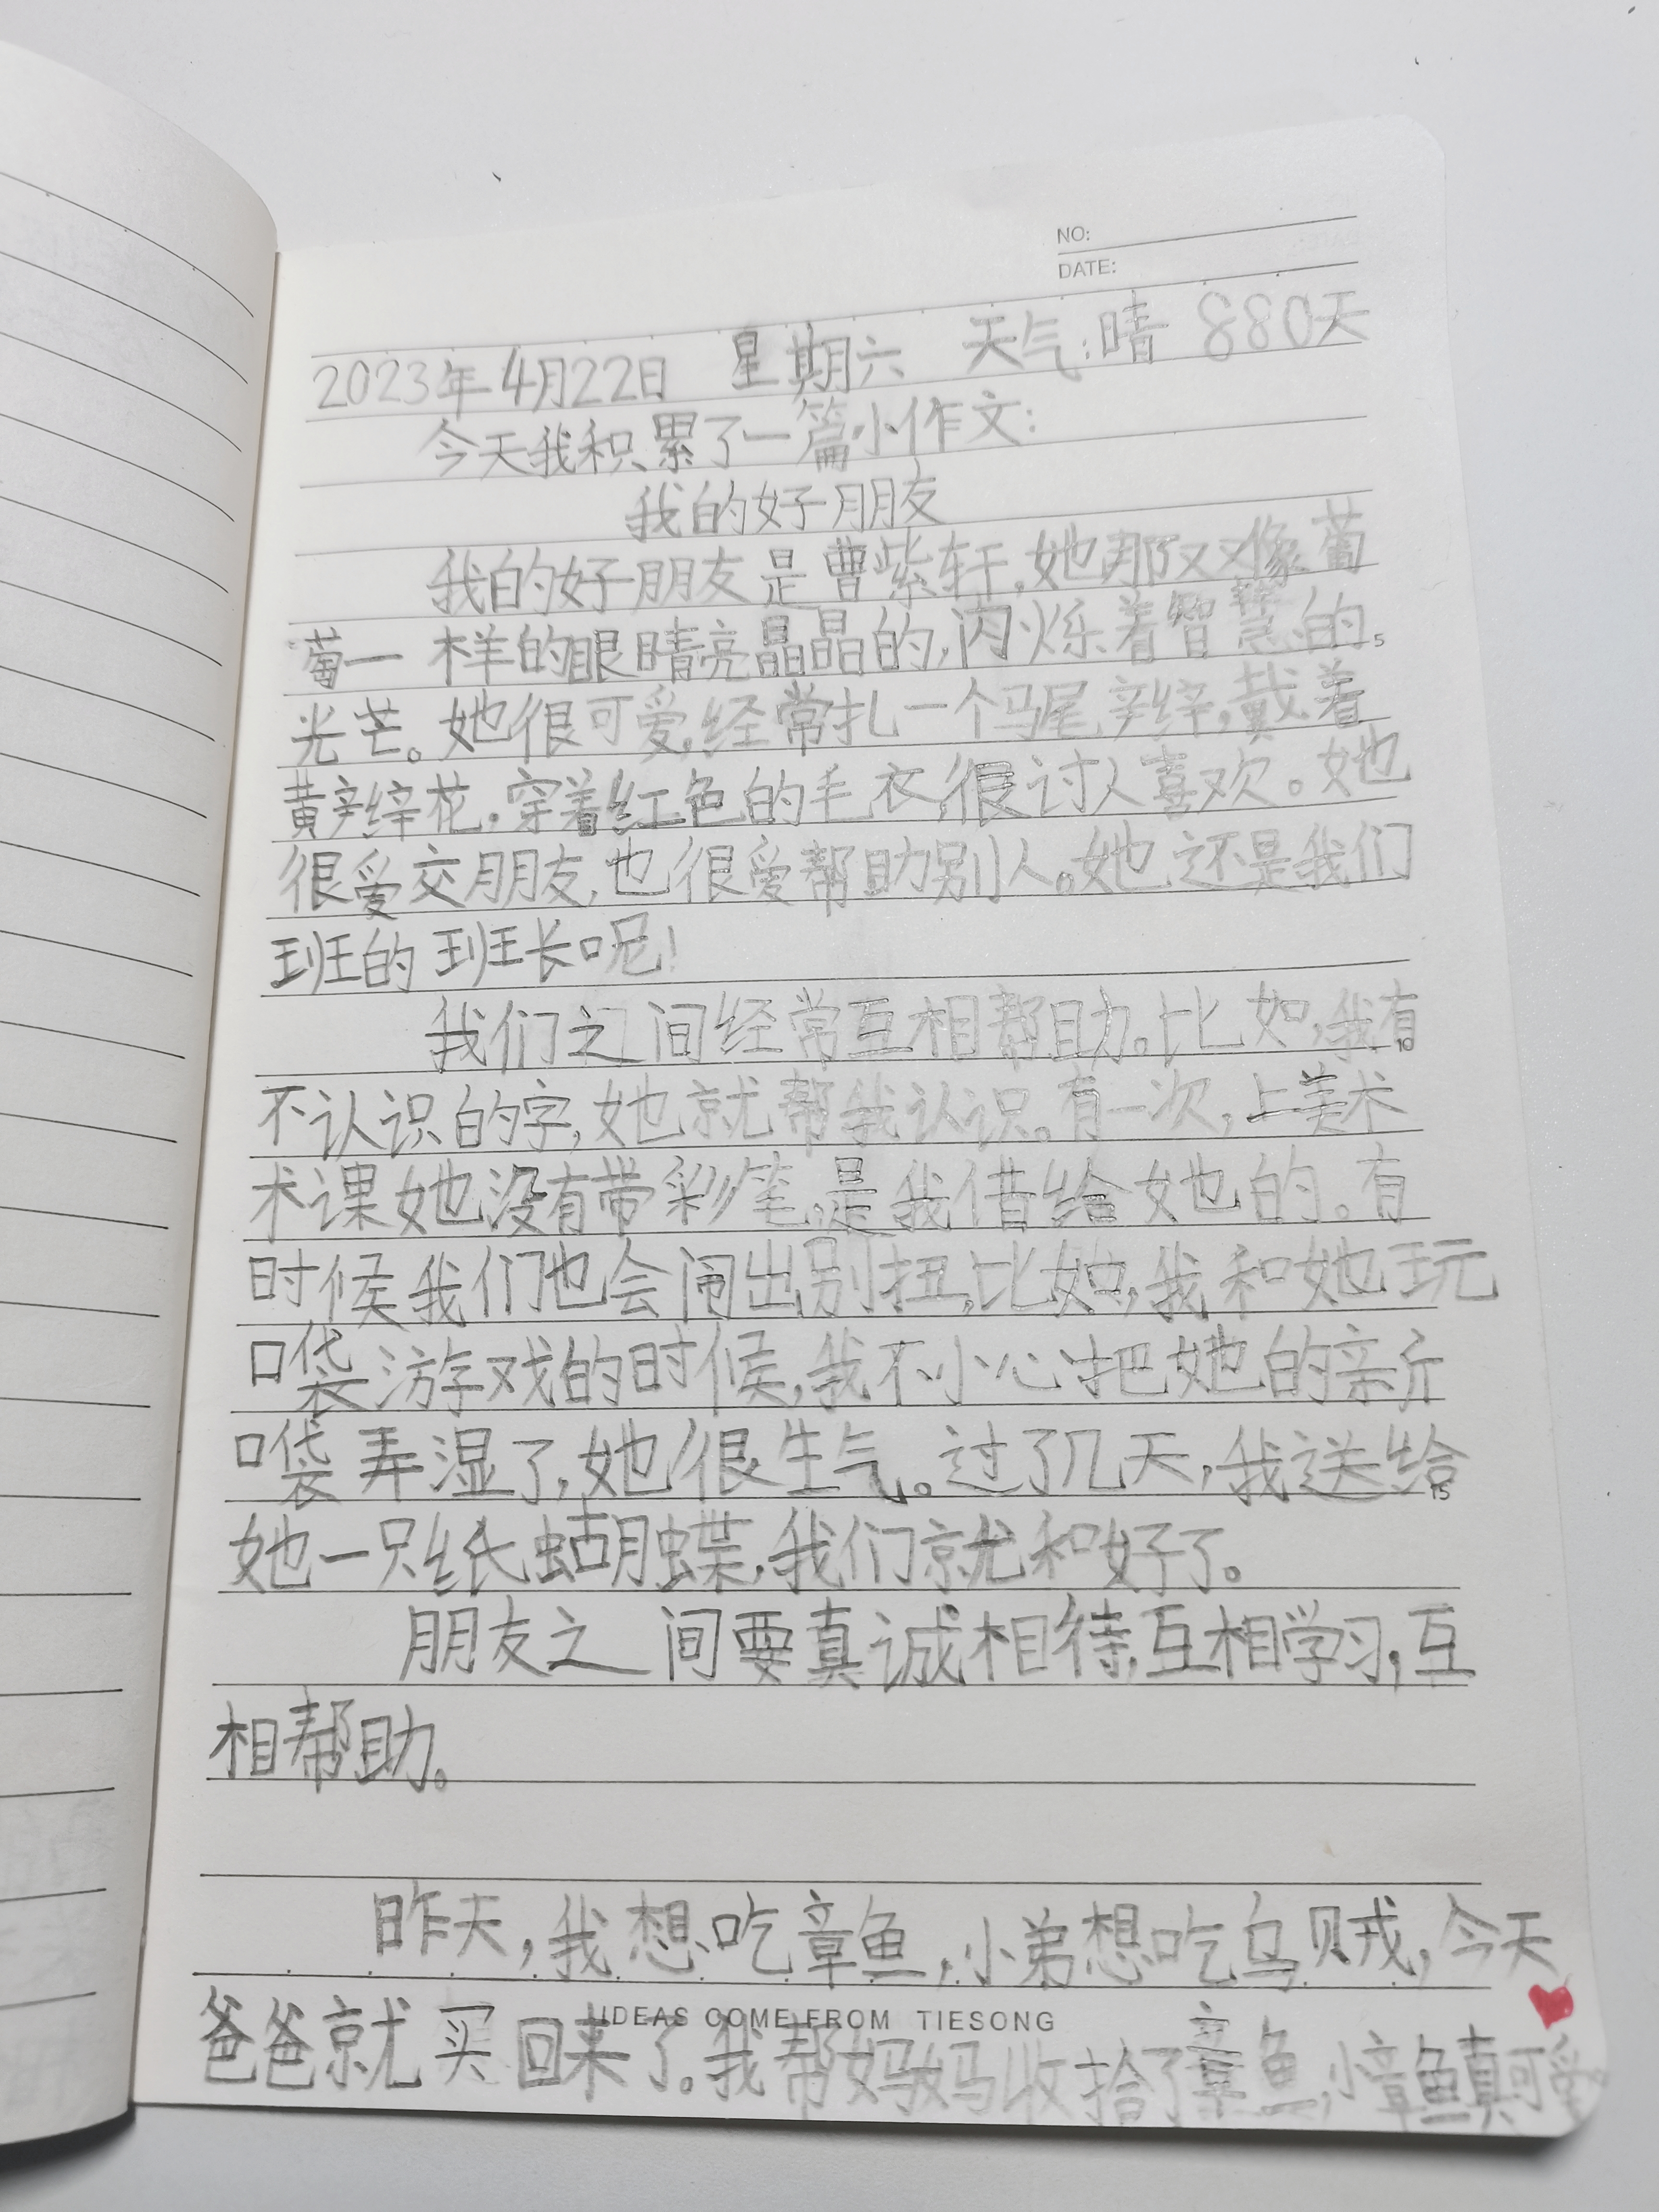 NO:
DATE:
2023年4月22日 星期六 天气:晴 880天
今天我积累了一篇小作文:
我的好朋友
我的好朋友是曹紫轩,她那双像葡
萄一样的眼睛亮晶晶的,闪烁着智慧的
5
光芒。她很可爱,经常扎一个马尾辫,戴着
黄辫花,穿着红色的毛衣,很讨人喜欢。她
很爱交朋友,也很爱帮助别人。她还是我们
班的班长呢!
我们之间经常互相帮助。比如,我有
10
不认识的字,她就帮我认识。有一次,上美术
术课她没有带彩笔,是我借给她的。有
时候我们也会闹出别扭,比如,我和她玩
口袋游戏的时候,我不小心把她的新
口袋弄湿了,她很生气。过了几天,我送给
15
她一只纸蝴蝶,我们就和好了。
朋友之间要真诚相待,互相学习,互
相帮助。
昨天,我想吃章鱼,小弟想吃乌贼,今天
IDEAS COME FROM TIESONG
爸爸就买回来了。我帮妈妈收拾了章鱼,小章鱼真可爱。